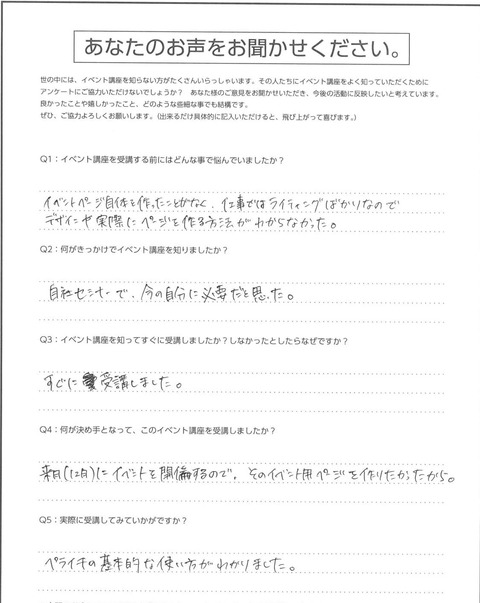 あなたのお声をお聞かせください。
世の中には、イベント講座を知らない方がたくさんいらっしゃいます。その人たちにイベント講座をよく知っていただくために
アンケートにご協力いただけないでしょうか？ あなた様のご意見をお聞かせいただき、今後の活動に反映したいと考えています。
良かったことや嬉しかったこと、どのような些細な事でも結構です。
ぜひ、ご協力よろしくお願いします。（出来るだけ具体的に記入いただけると、飛び上がって喜びます。）
Q1：イベント講座を受講する前にはどんな事で悩んでいましたか？
イベントページ自体を作ったことがなく、仕事ではライティングばかりなので
デザインや実際にページを作る方法がわからなかった。
Q2：何がきっかけでイベント講座を知りましたか？
自社セミナーで、今の自分に必要だと思った。
Q3：イベント講座を知ってすぐに受講しましたか？しなかったとしたらなぜですか？
すぐに受講しました。
Q4：何が決め手となって、このイベント講座を受講しましたか？
来月(12月)にイベントを開催するので、そのイベント用ページを作りたかったから。
Q5：実際に受講してみていかがですか？
ペライチの基本的な使い方がわかりました。